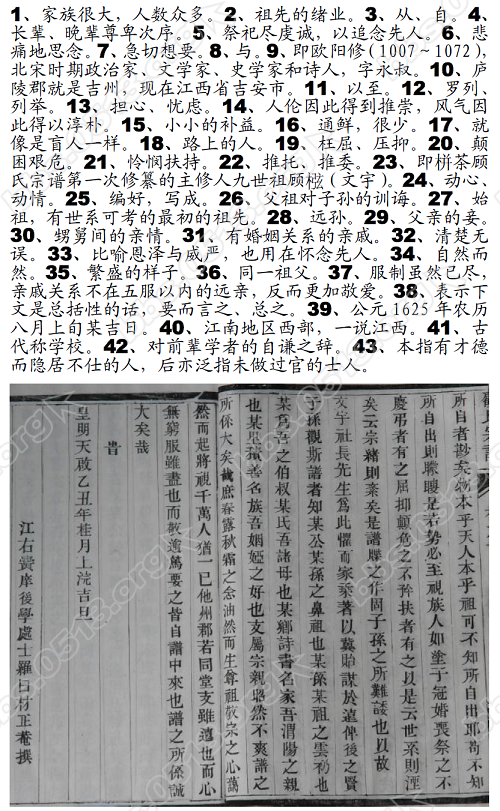 1、家族很大，人数众多。2、祖先的绪业。3、从、自。4、
长辈、晚辈尊卑次序。5、祭祀尽虔诚，以追念先人。6、悲
痛地思念。7、急切想要。8、与。9、即欧阳修（1007～1072），
北宋时期政治家、文学家、史学家和诗人，字永叔。10、庐
陵郡就是吉州，现在江西省吉安市。11、以至。12、罗列、
列举。13、担心、忧虑。14、人伦因此得到推崇，风气因
此得以淳朴。15、小小的补益。16、通鲜，很少。17、就
像是盲人一样。18、路上的人。19、枉屈、压抑。20、颠
困艰危。21、怜悯扶持。22、推托、推委。23、即栟茶顾
氏宗谱第一次修纂的主修人九世祖顾檖（文字）。24、动心、
动情。25、编好，写成。26、父祖对子孙的训诲。27、始
祖，有世系可考的最初的祖先。28、远孙。29、父亲的妾。
30、甥舅间的亲情。31、有婚姻关系的亲戚。32、清楚无
误。33、比喻恩泽与威严，也用在怀念先人。34、自然而
然。35、繁盛的样子。36、同一祖父。37、服制虽然已尽，
亲戚关系不在五服以内的远亲，反而更加敬爱。38、表示下
文是总括性的话，要而言之、总之。39、公元1625年农历
八月上旬某吉日。40、江南地区西部，一说江西。41、古
代称学校。42、对前辈学者的自谦之辞。43、本指有才德
而隐居不仕的人，后亦泛指未做过官的士人。
所自者尠矣物本乎天人本乎祖可不知所自出耶苟不知
所自出則矇瞍是若勢必至視族人如塗子冠婚喪祭之不
慶弔者有之屈抑顛危之不矜扶者有之以是云世系則溼
矣云宗緒則紊矣是譜牒之作固子孫之所難諉也以故
文宇社長先生爲此懼而家乘著以冀貽謀於遠俾後之賢
子孫觀斯譜者知某公某孫之鼻祖也某孫某祖之雲礽也
某爲吾之伯叔某氏吾諸母也某鄉詩書名家吾渭陽之親
也某里獻善名族吾姻婭之好也支屬宗親照然不爽譜之
所係大矣哉庶春露秋霜之念油然而生尊祖敬宗之心藹
然而起將視千萬人猶一已他州郡若同堂支雖遠也而心
無窮服雖盡也而敬逾篤要之皆自譜中來也譜之所係誠
大矣哉
旹
皇明天啟乙丑年桂月上浣吉旦
江右黌庠後學處士羅曰材正菴撰